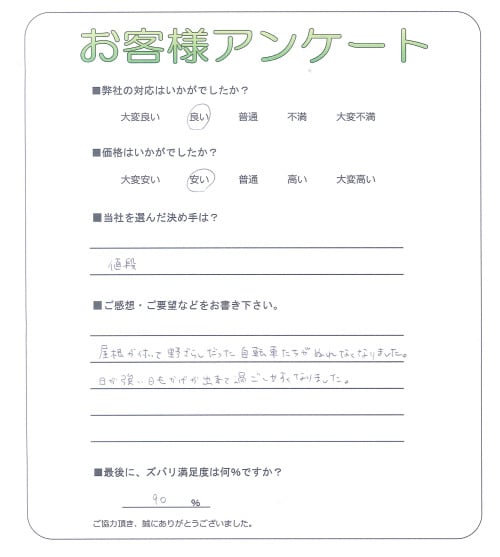 お客様アンケート
■弊社の対応はいかがでしたか？
大変良い 良い 普通 不満 大変不満
■価格はいかがでしたか？
大変安い 安い 普通 高い 大変高い
■当社を選んだ決め手は？
値段
■ご感想・ご要望などをお書き下さい。
屋根が付いて野ざらしだった自転車たちがぬれなくなりました。
日が強い日もかげが出来て過ごしやすくなりました。
■最後に、ズバリ満足度は何％ですか？
90 ％
ご協力頂き、誠にありがとうございました。